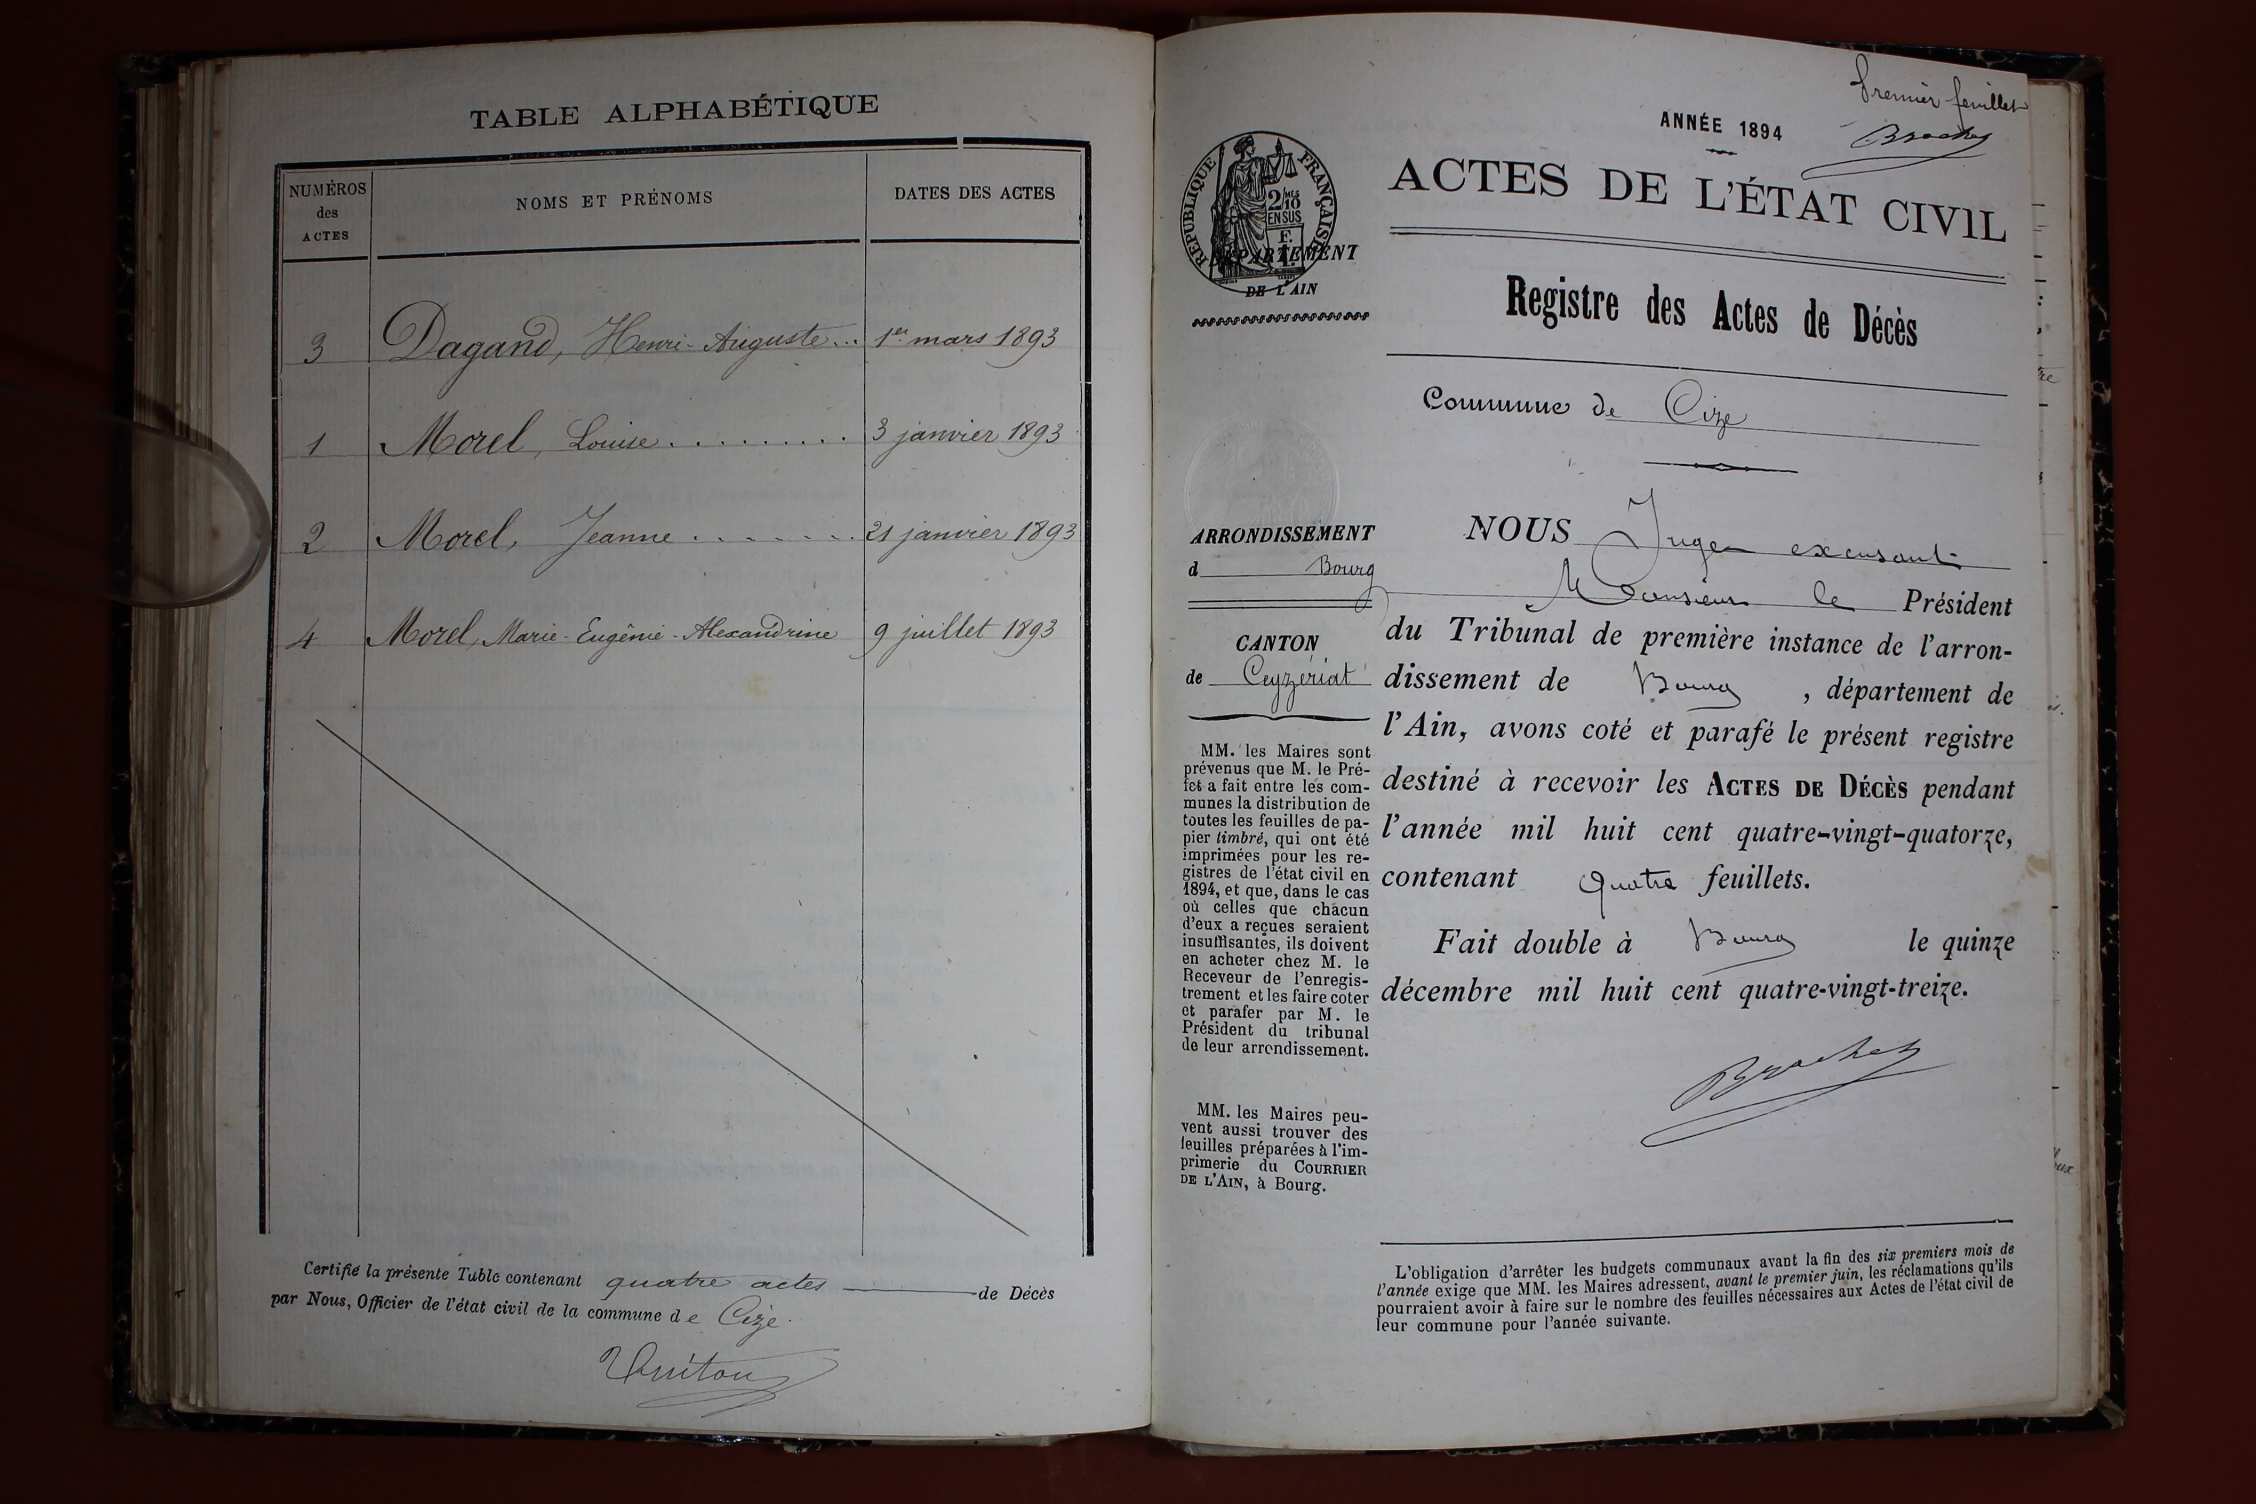 TABLE ALPHABÉTIQUE
NUMÉROS
des
ACTES
NOMS ET PRÉNOMS
DATES DES ACTES
3 Dagand, Henri-Auguste... 1er mars 1893
1 Morel, Louise......... 3 janvier 1893
2 Morel, Jeanne....... 21 janvier 1893
4 Morel, Marie-Eugénie-Alexandrine 9 juillet 1893
Certifié la présente Table contenant quatre actes de Décès
par Nous, Officier de l'état civil de la commune de Cize.
premier feuillet
Brochet
ANNÉE 1894
ACTES DE L'ÉTAT CIVIL
RÉPUBLIQUE FRANÇAISE
2/10 MES
EN SUS
DÉPARTEMENT
DE L'AIN
Registre des Actes de Décès
Commune de Cize
ARRONDISSEMENT
d Bourg
CANTON
de Ceyzériat
MM. les Maires sont
prévenus que M. le Pré-
fet a fait entre les com-
munes la distribution de
toutes les feuilles de pa-
pier timbré, qui ont été
imprimées pour les re-
gistres de l'état civil en
1894, et que, dans le cas
où celles que chacun
d'eux a reçues seraient
insuffisantes, ils doivent
en acheter chez M. le
Receveur de l'enregis-
trement et les faire coter
et parafer par M. le
Président du tribunal
de leur arrondissement.
MM. les Maires peu-
vent aussi trouver des
feuilles préparées à l'im-
primerie du COURRIER
DE L'AIN, à Bourg.
NOUS Juge excusant
Monsieur le Président
du Tribunal de première instance de l'arron-
dissement de Bourg, département de
l'Ain, avons coté et parafé le présent registre
destiné à recevoir les ACTES DE DÉCÈS pendant
l'année mil huit cent quatre-vingt-quatorze,
contenant quatre feuillets.
Fait double à Bourg le quinze
décembre mil huit cent quatre-vingt-treize.
Brochet
L'obligation d'arrêter les budgets communaux avant la fin des six premiers mois de
l'année exige que MM. les Maires adressent, avant le premier juin, les réclamations qu'ils
pourraient avoir à faire sur le nombre des feuilles nécessaires aux Actes de l'état civil de
leur commune pour l'année suivante.